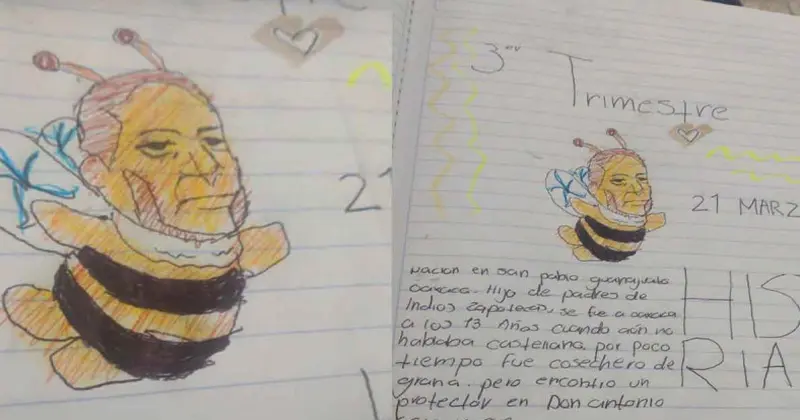 3er Trimestre
21 MARZ
HIS
RIA
Nacion en san pablo
oaxaca. Hijo de padres de
Indios zapotecos, se fue a oaxaca
a los 13 Años cuando aún no
hablaba castellana, por poco
tiempo fue cosechero de
grana. pero encontro un
protector en Don antonio